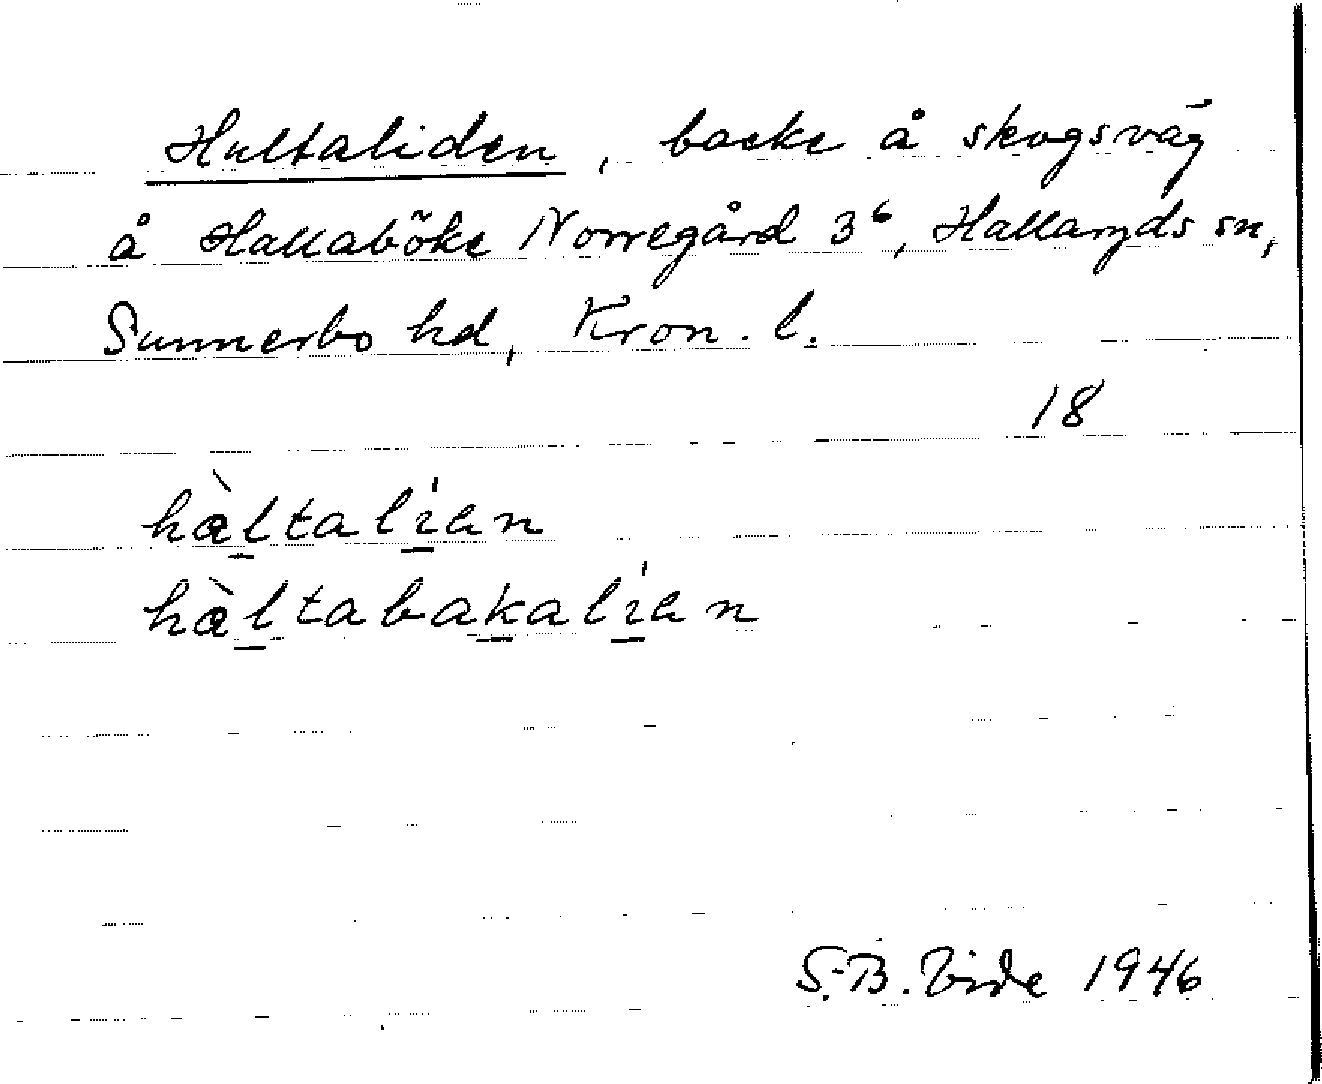 Hultaliden, backe å skogsväg
å Hallaböke Norregård 3⁶, Hallaryds sn,
Sunnerbo hd, Kron. l.
18
hàltalían
hàltabakalían
S.-B. Vide 1946